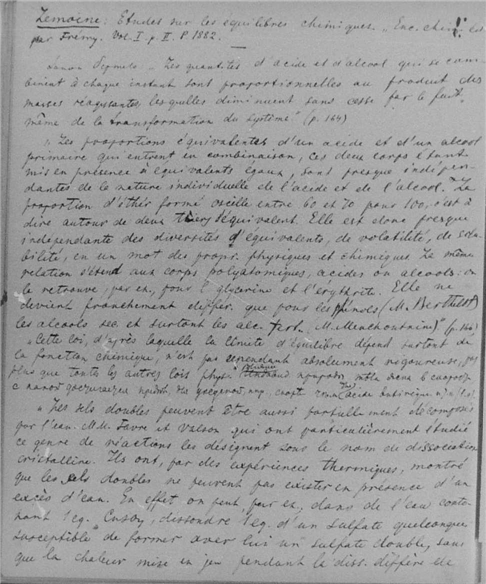 Lemoine: Etudes sur les équilibres chimiques. Enc. chim.
par Frémy. Vol. I. p. II. P. 1882.
"Les quantités d'acide et d'alcool qui se com-
binent à chaque instant sont proportionnelles au produit des
masses réagissantes, lesquelles diminuent sans cesse par le fait
même de la transformation du système" (p. 164)
"Les proportions équivalentes d'un acide et d'un alcool
primaire qui entrent en combinaison, ces deux corps étant
mis en présence à équivalents égaux, sont presque indépen-
dantes de la nature individuelle de l'acide et de l'alcool. La
proportion d'éther formé oscille entre 60 et 70 pour 100, c'est à
dire autour de deux tiers d'équivalent. Elle est donc presque
indépendante des diversités d'équivalents, de volatilité, de solu-
bilité, en un mot des propr. physiques et chimiques. La même
relation s'étend aux corps polyatomiques, acides ou alcools: on
le retrouve, par ex., pour l. glycérine et l'érythrite. Elle ne
devient franchement différ. que pour les phénols (M. Berthelot)
les alcools sec. et surtout les alc. tert. M. Menchoutkin)" (p. 160)
"Cette loi, d'après laquelle la limite d'équilibre dépend surtout de
la fonction chimique, n'est pas cependant absolument rigoureuse, pas
plus que toutes les autres lois phys."
"Les sels doubles peuvent être aussi partiellement décomposés
par l'eau. M.M. Favre et Valson qui ont particulièrement étudié
ce genre de réactions les désignent sous le nom de dissociation
cristalline. Ils ont, par des expériences thermiques, montré
que les sels doubles ne peuvent pas exister en présence d'un
excès d'eau. En effet on peut par ex., dans de l'eau conte-
nant 1 éq. dissoudre 1 éq. d'un sulfate quelconque
susceptible de former avec lui un sulfate double, sans
que la chaleur mise en jeu pendant le diss. diffère de